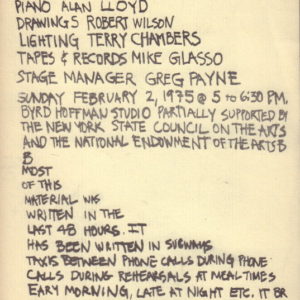 PIANO ALAN LLOYD
DRAWINGS ROBERT WILSON
LIGHTING TERRY CHAMBERS
TAPES & RECORDS MIKE GLASSO
STAGE MANAGER GREG PAYNE
SUNDAY FEBRUARY 2, 1975 @ 5 TO 6:30 PM.
BYRD HOFFMAN STUDIO PARTIALLY SUPPORTED BY
THE NEW YORK STATE COUNCIL ON THE ARTS
AND THE NATIONAL ENDOWMENT OF THE ARTS B
B
MOST
OF THIS
MATERIAL WAS
WRITTEN IN THE
LAST 48 HOURS. IT
HAS BEEN WRITTEN IN SUBWAYS
TAXIS BETWEEN PHONE CALLS DURING PHONE
CALLS DURING REHEARSALS AT MEAL TIMES
EARY MORNING, LATE AT NIGHT ETC. IT BR